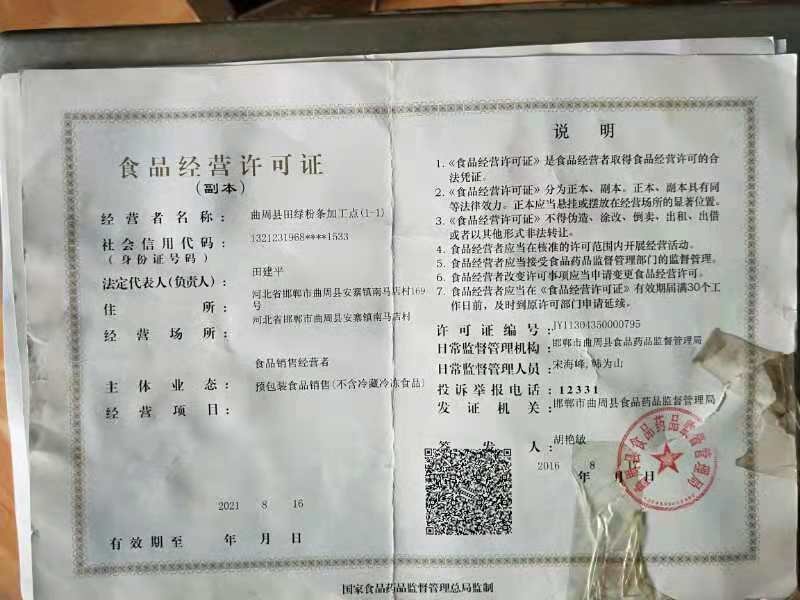 食品经营许可证
(副本)
经营者名称: 曲周县田绿粉条加工点(1-1)
社会信用代码: 1321231968****1533
(身份证号码)
法定代表人(负责人): 田建平
住所: 河北省邯郸市曲周县安寨镇南马店村169号
经营场所: 河北省邯郸市曲周县安寨镇南马店村
主体业态: 食品销售经营者
经营项目: 预包装食品销售(不含冷藏冷冻食品)
有效期至 2021年8月16日
说明
1.《食品经营许可证》是食品经营者取得食品经营许可的合
法凭证。
2.《食品经营许可证》分为正本、副本。正本、副本具有同
等法律效力。正本应当悬挂或摆放在经营场所的显著位置。
3.《食品经营许可证》不得伪造、涂改、倒卖、出租、出借
或者以其他形式非法转让。
4. 食品经营者应当在核准的许可范围内开展经营活动。
5. 食品经营者应当接受食品药品监督管理部门的监督管理。
6. 食品经营者改变许可事项应当申请变更食品经营许可。
7. 食品经营者应当在《食品经营许可证》有效期届满30个工
作日前,及时到原许可部门申请延续。
许可证编号: JY11304350000795
日常监督管理机构: 邯郸市曲周县食品药品监督管理局
日常监督管理人员: 宋海峰,韩为山
投诉举报电话: 12331
发证机关: 邯郸市曲周县食品药品监督管理局
签发人: 胡艳敏
2016年8月17日
国家食品药品监督管理总局监制